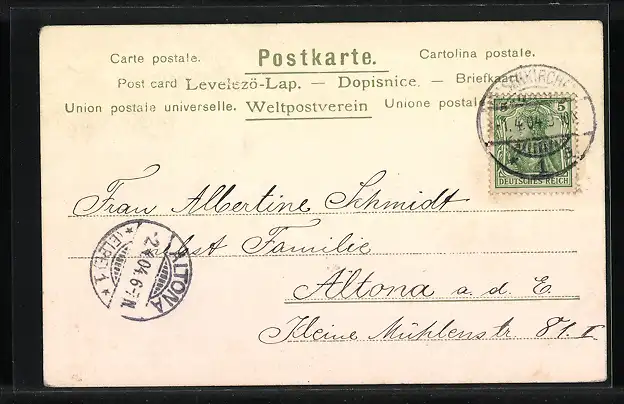 Carte postale. Postkarte. Cartolina postale.
Post card Levelsző-Lap. — Dopisnice. — Briefkaart
Union postale universelle. Weltpostverein Unione postale
5 5
1.4.04
1
DEUTSCHES REICH
Frau Albertine Schmidt
nebst Familie
Altona a. d. E.
Kleine Mühlenstr 81. I
ALTONA
2.4.04.6-7N.
* (ELBE) 1 *